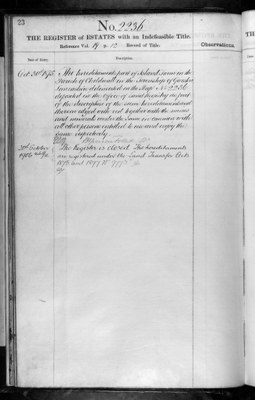 23
No. 2236
THE REGISTER of ESTATES with an Indefeasible Title.
Reference Vol. 19 Record of Title.
Observations.
Date of Entry.
Description.
Oct 30th 1875 The hereditaments part of School Lane in the
Parish of Childwall in the Township of Garston
Lancashire delineated on the Map No 2236
deposited in the Office of Land Registry as part
of the description of the same hereditaments and
thereon edged with red together with the mines
and minerals under the same in common with
all other persons entitled to use and enjoy the
same respectively
31st October
The Register is closed. The hereditaments
are registered under the Land Transfer Acts
1875 and 1897